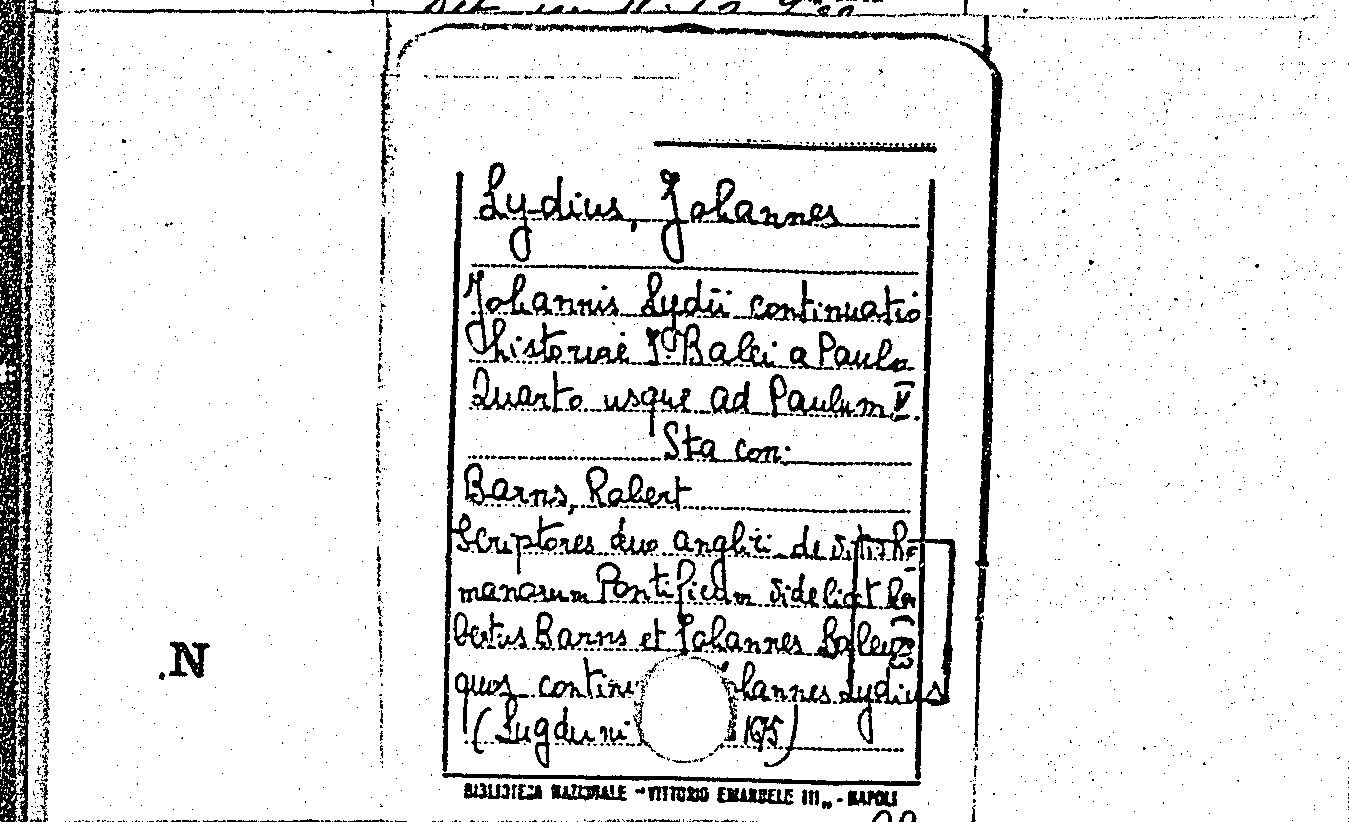 Lydius, Johannes
Johannis Lydii continuatio
historiae J. Balei a Paulo
Quarto usque ad Paulum V.
Sta con:
Barns, Robert
Scriptores duo anglici de vitis Ro=
manorum Pontificum videlicet Ro=
bertus Barns et Johannes Baleus
quos continu Johannes Lydius
(Lugduni 1615)
.N
BIBLIOTECA NAZIONALE "VITTORIO EMANUELE III„ - NAPOLI